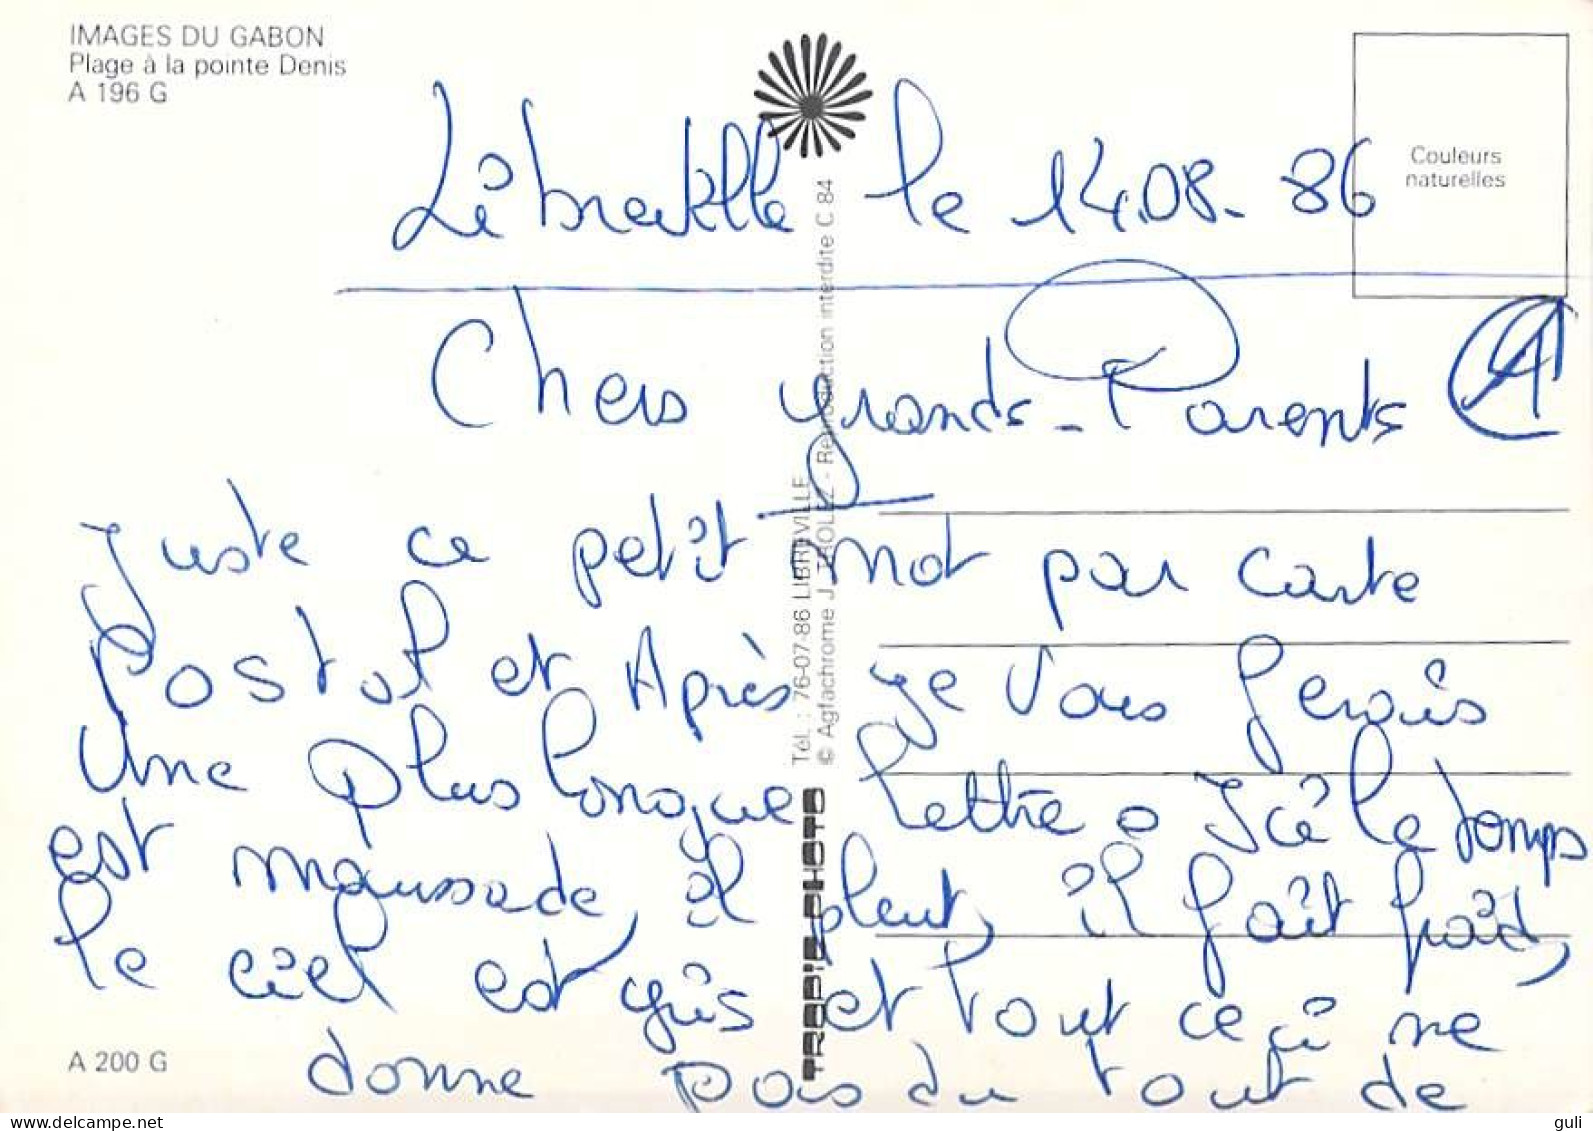 IMAGES DU GABON
Plage à la pointe Denis
A 196 G
Couleurs
naturelles
Libreville le 14.08.86
Chers grands-Parents
juste ce petit mot par carte
Postal et Après je vous ferais
Une plus longue lettre. Ici le temps
est maussade, il pleut, il fait froid,
le ciel est gris et tout ceci ne
donne pas du tout de
A 200 G
Tél. : 76-07-86 LIBREVILLE
© Agfachrome J. TROLEZ - Reproduction interdite C 84
TROPIC PHOTO
delcampe.net
guli